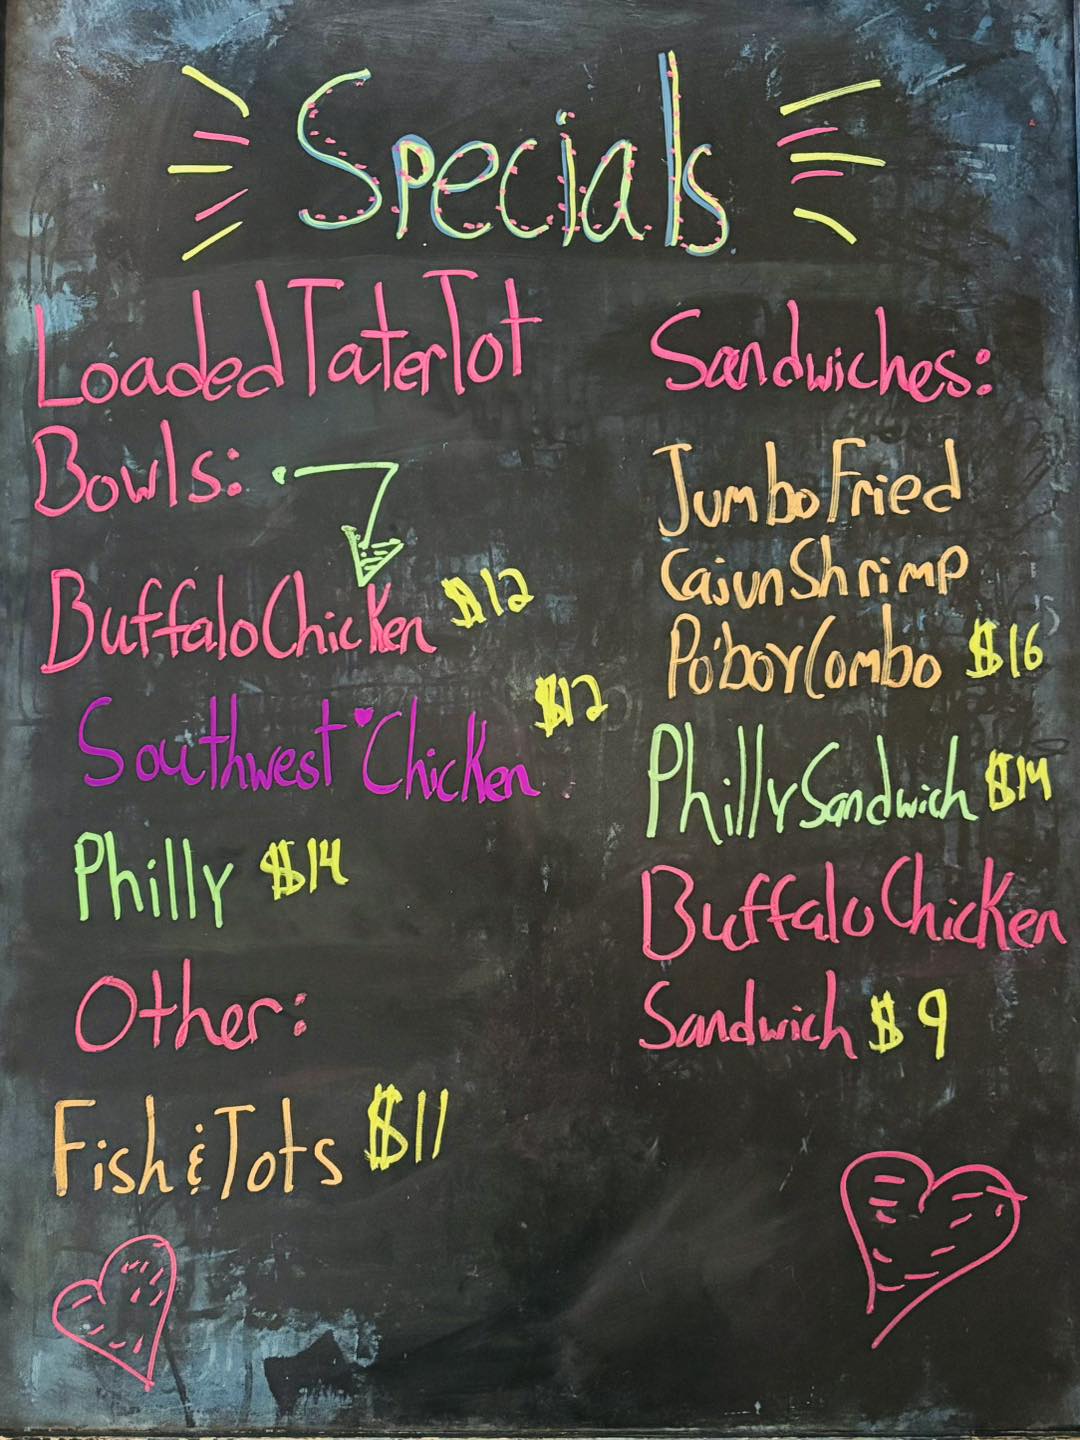 Specials
Loaded Tater Tot
Bowls:
Buffalo Chicken $12
Southwest Chicken $12
Philly $14
Other:
Fish & Tots $11
Sandwiches:
Jumbo Fried
Cajun Shrimp
Po'boy Combo $16
Philly Sandwich $14
Buffalo Chicken
Sandwich $9